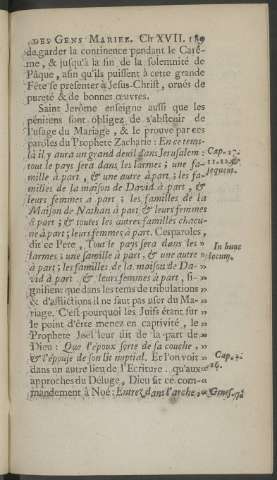 DES GENS MARIEZ. Ch XVII. 189
de garder la continence pendant le Carê-
me, & jusqu'à la fin de la solemnité de
Pâque, afin qu'ils puissent à cette grande
Fête se presenter à Jesus-Christ, ornés de
pureté & de bonnes œuvres.
Saint Jerôme enseigne aussi que les
pénitens sont obligez de s'abstenir de
l'usage du Mariage, & le prouve par ces
paroles du Prophete Zacharie: En ce tems-
là il y aura un grand deüil dans Jerusalem: Cap. 12.
tout le pays sera dans les larmes; une fa- 11.12.&
mille à part, & une autre à part; les fa- sequent.
milles de la maison de David à part, &
leurs femmes à part; les familles de la
Maison de Nathan à part & leurs femmes
à part; & toutes les autres familles chacu-
ne à part; leurs femmes à part. Ces paroles,
dit ce Pere, Tout le pays sera dans les » In hunc
larmes: une famille à part, & une autre » locum.
à part; les familles de la maison de Da- »
vid à part & leurs femmes à part, si- »
gnifient que dans les tems de tribulations »
& d'afflictions il ne faut pas user du Ma- »
riage. C'est pourquoi les Juifs étant sur »
le point d'être menez en captivité, le »
Prophete Joël leur dit de la part de »
Dieu: Que l'époux sorte de sa couche, »
& l'épouse de son lit nuptial. Et l'on voit » Cap. 2.
dans un autre lieu de l'Ecriture, qu'aux » 16.
approches du Déluge, Dieu fit ce com- »
mandement à Noé: Entrez dans l'arche, » Genes.